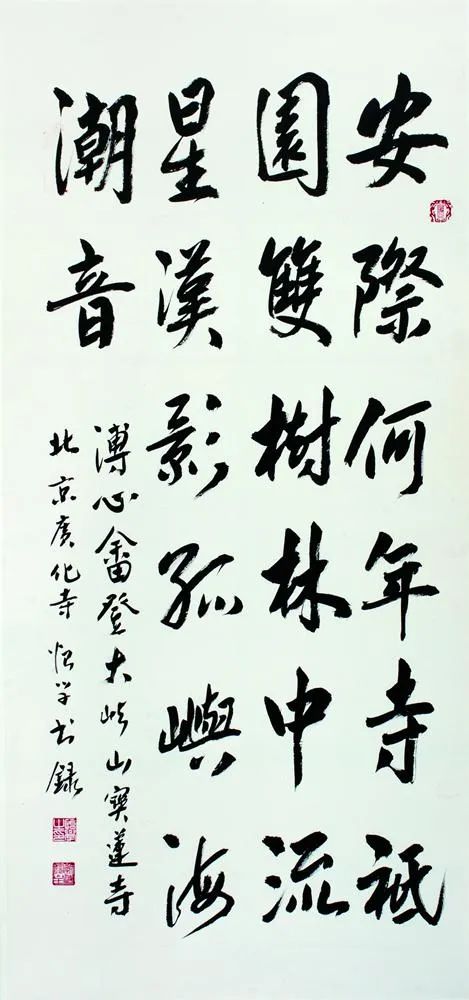 安際何年寺祇
園雙樹林中流
星漢影孤嶼海
潮音
溥心畬登大屿山寶蓮寺
北京廣化寺怡学书録